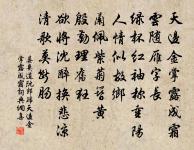 天邊金掌露成霜
雲隨雁字長
綠杯紅袖趁重陽
人情似故鄉
蘭佩紫菊簪黃
殷勤理舊狂
欲將沈醉換悲涼
清歌莫斷腸
晏幾道阮郎歸天邊金
掌露成霜